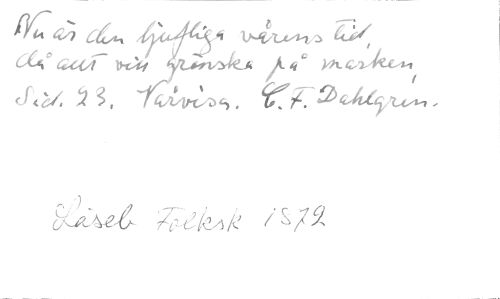 Nu är den ljufliga vårens tid,
då allt vill grönska på marken,
Sid. 23. Vårvisa. C. F. Dahlgren.
Läseb Folksk 1872